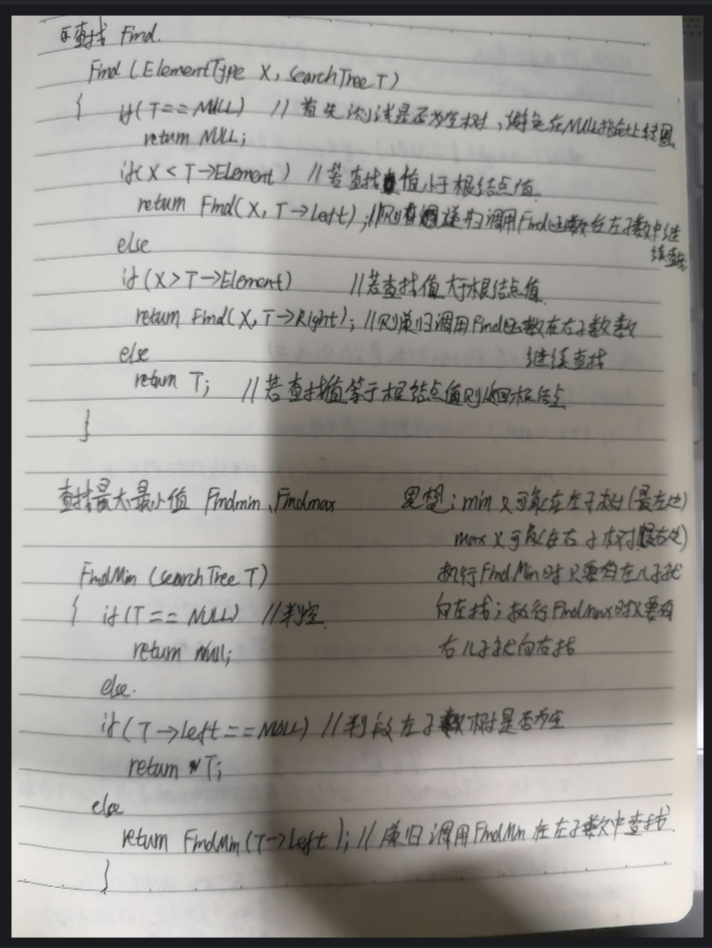 查找 Find.
Find (ElementType X, SearchTree T)
{ if(T==NULL) // 首先测试是否为空树,避免在NULL指针上转圈
return NULL;
if(X<T→Element) //若查找值小于根结点值
return Find(X, T→Left); //则递归调用Find函数在左子数中继
续查找
else
if(X>T→Element) //若查找值大于根结点值
return Find(X, T→Right); //则递归调用Find函数在右子数
else 继续查找
return T; //若查找值等于根结点值则返回根结点
}
查找最大最小值 Findmin、Findmax 思想:min只可能在左子树(最左边)
max只可能在右子树(最右边)
FindMin (SearchTree T) 执行FindMin时只要有左儿子就
{ if(T==NULL) //判空 向左找;执行Findmax时只要有
return NULL; 右儿子就向右找
else.
if(T→Left==NULL) //判断左子树是否为空
return T;
else
return FindMin(T→Left); //递归调用FindMin在左子数中查找
}